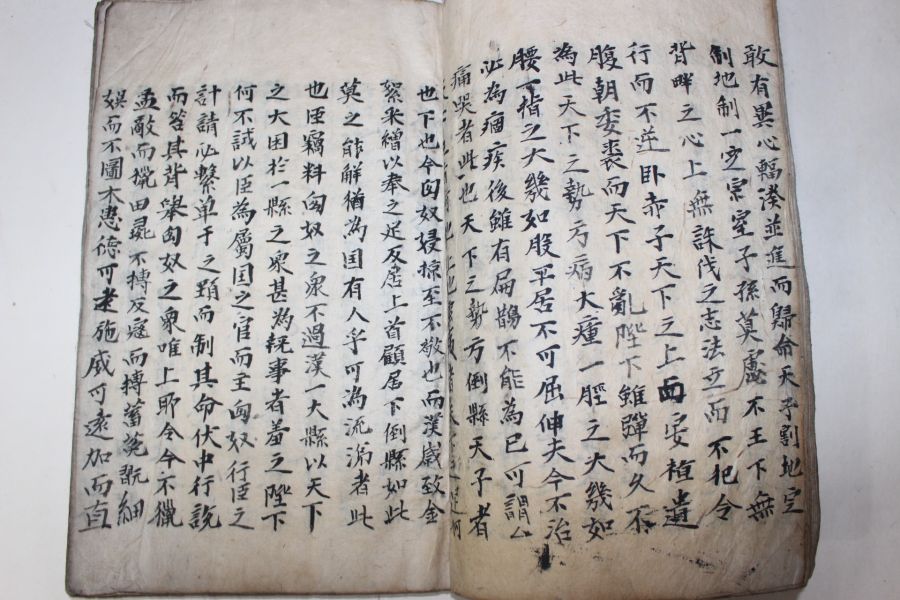 敢有異心輻湊並進而歸命天子割地定
制地制一定宗室子孫莫慮不王下無
背畔之心上無誅伐之志法立而不犯令
行而不逆卧赤子天下之上而安植遺
腹朝委裘而天下不亂陛下雖彈而久不
為此天下之勢方病大瘇一脛之大幾如
腰一指之大幾如股平居不可屈伸夫今不治
必為痼疾後雖有扁鵲不能為已可謂
痛哭者此也天下之勢方倒縣天子者
也下也今匈奴嫚掠至不敬也而漢歲致金
絮采繒以奉之足反居上首顧居下倒縣如此
莫之能解猶為国有人乎可為流涕者此
也臣竊料匈奴之衆不過漢一大縣以天下
之大困於一縣之衆甚為執事者羞之陛下
何不試以臣為屬国之官而主匈奴行臣之
計請必繫单于之頸而制其命伏中行說
而笞其背舉匈奴之衆唯上耶令今不獵
孟敵而獵田彘不搏反寇而搏蓄菟翫細
娱而不圖大患德可遠施威可遠加而直